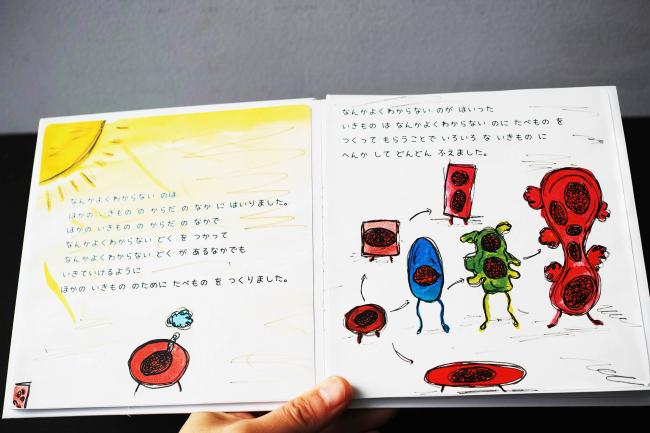 なんかよくわからない のは
ほかの いきもの の からだ の なか に はいりました。
ほかの いきもの の からだ の なかで
なんかよくわからない どく を つかって
なんかよくわからない どく が あるなかでも
いきていけるように
ほかの いきもの のために たべもの を つくりました。
なんかよくわからない のが はいった
いきもの は なんかよくわからない のに たべもの を
つくって もらうことで いろいろ な いきもの に
へんか して どんどん ふえました。